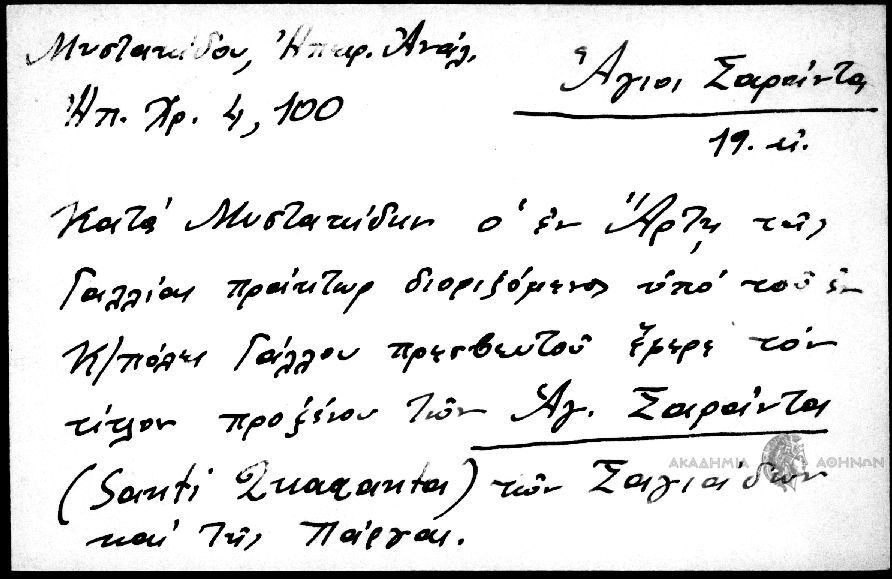 Μυστακίδου, Ἠπειρ. Ἀνάλ.
Ἠπ. Χρ. 4, 100
Ἅγιοι Σαράντα
19. αἰ.
Κατά Μυστακίδην ὁ ἐν Ἄρτῃ τῆς
Γαλλίας πράκτωρ διοριζόμενος ὑπό τοῦ ἐν
Κ/πόλει Γάλλου πρεσβευτοῦ ἔφερε τόν
τίτλον προξένου τῶν Ἁγ. Σαράντα
(Santi Quaranta) τῶν Σαγιάδων
καί τῆς Πάργας.
ΑΚΑΔΗΜΙΑ ΑΘΗΝΩΝ